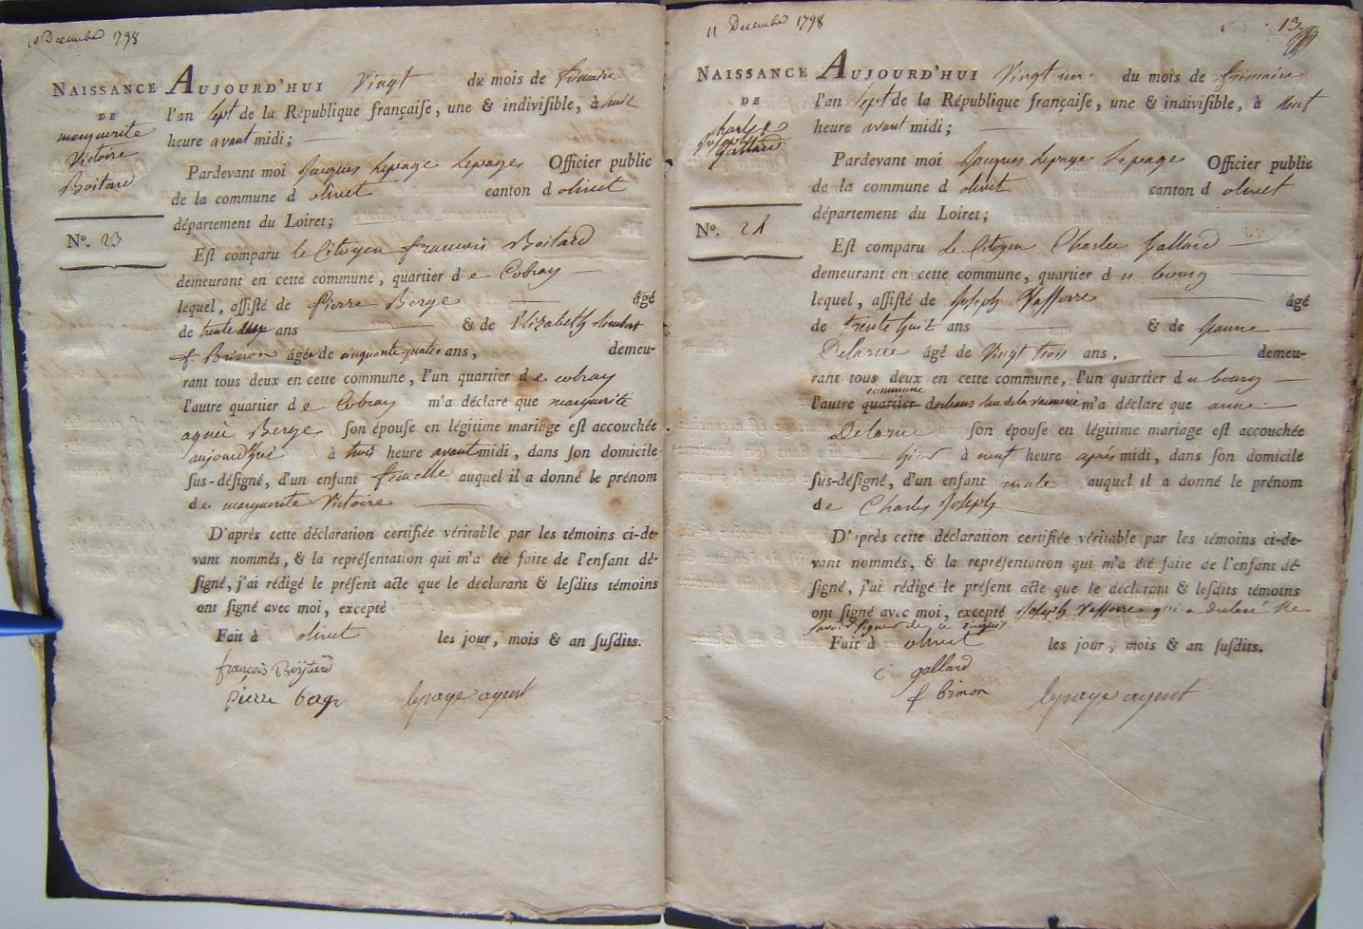 10 Decembre 1798
NAISSANCE
DE
marguerite
Victoire
Boitard
N°. 23
AUJOURD'HUI Vingt du mois de frimaire
l'an sept de la République françaiſe, une & indiviſible, à huit
heure avant midi ;
Pardevant moi Jacques Lepage Lepage Officier public
de la commune d olivet canton d olivet
département du Loiret ;
Eſt comparu le Citoyen francois Boitard
demeurant en cette commune, quartier d e Cobray
lequel, aſſiſté de Pierre Berge âgé
de trente deux ans & de Elizabeth
f Brinon âgée de cinquante quatre ans, demeu-
rant tous deux en cette commune, l'un quartier d e cobray
l'autre quartier d e Cobray m'a déclaré que marguerite
Berge ſon épouſe en légitime mariage eſt accouchée
aujourd'huy à trois heure avant midi, dans ſon domicile
ſus-déſigné, d'un enfant femelle auquel il a donné le prénom
de marguerite Victoire
D'après cette déclaration certifiée véritable par les témoins ci-de-
vant nommés, & la repréſentation qui m'a été faite de l'enfant dé-
ſigné, j'ai rédigé le préſent acte que le déclarant & leſdits témoins
ont ſigné avec moi, excepté
Fait à olivet les jour, mois & an ſuſdits.
françois Boitard
pierre berge lepage agent
11 Decembre 1798
13
NAISSANCE
DE
Charles
Joseph
Gallard
N°. 24
AUJOURD'HUI Vingt un du mois de frimaire
l'an sept de la République françaiſe, une & indiviſible, à huit
heure avant midi ;
Pardevant moi Jacques Lepage Lepage Officier public
de la commune d olivet canton d olivet
département du Loiret ;
Eſt comparu le Citoyen Charles Gallard
demeurant en cette commune, quartier d u bourg
lequel, aſſiſté de Joseph Vafforre âgé
de trente huit ans & de Jeanne
Delarue âgé de Vingt trois ans, demeu-
rant tous deux en cette commune, l'un quartier d u bourg
commune
l'autre quartier m'a déclaré que anne
Delarue ſon épouſe en légitime mariage eſt accouchée
hier à neuf heure après midi, dans ſon domicile
ſus-déſigné, d'un enfant male auquel il a donné le prénom
de Charles Joseph
D'après cette déclaration certifiée véritable par les témoins ci-de-
vant nommés, & la repréſentation qui m'a été faite de l'enfant dé-
ſigné, j'ai rédigé le préſent acte que le déclarant & leſdits témoins
ont ſigné avec moi, excepté Joseph Vafforre qui a declaré ne
savoir signer de ce enquis
Fait à olivet les jour, mois & an ſuſdits.
c gallard
f binon lepage agent